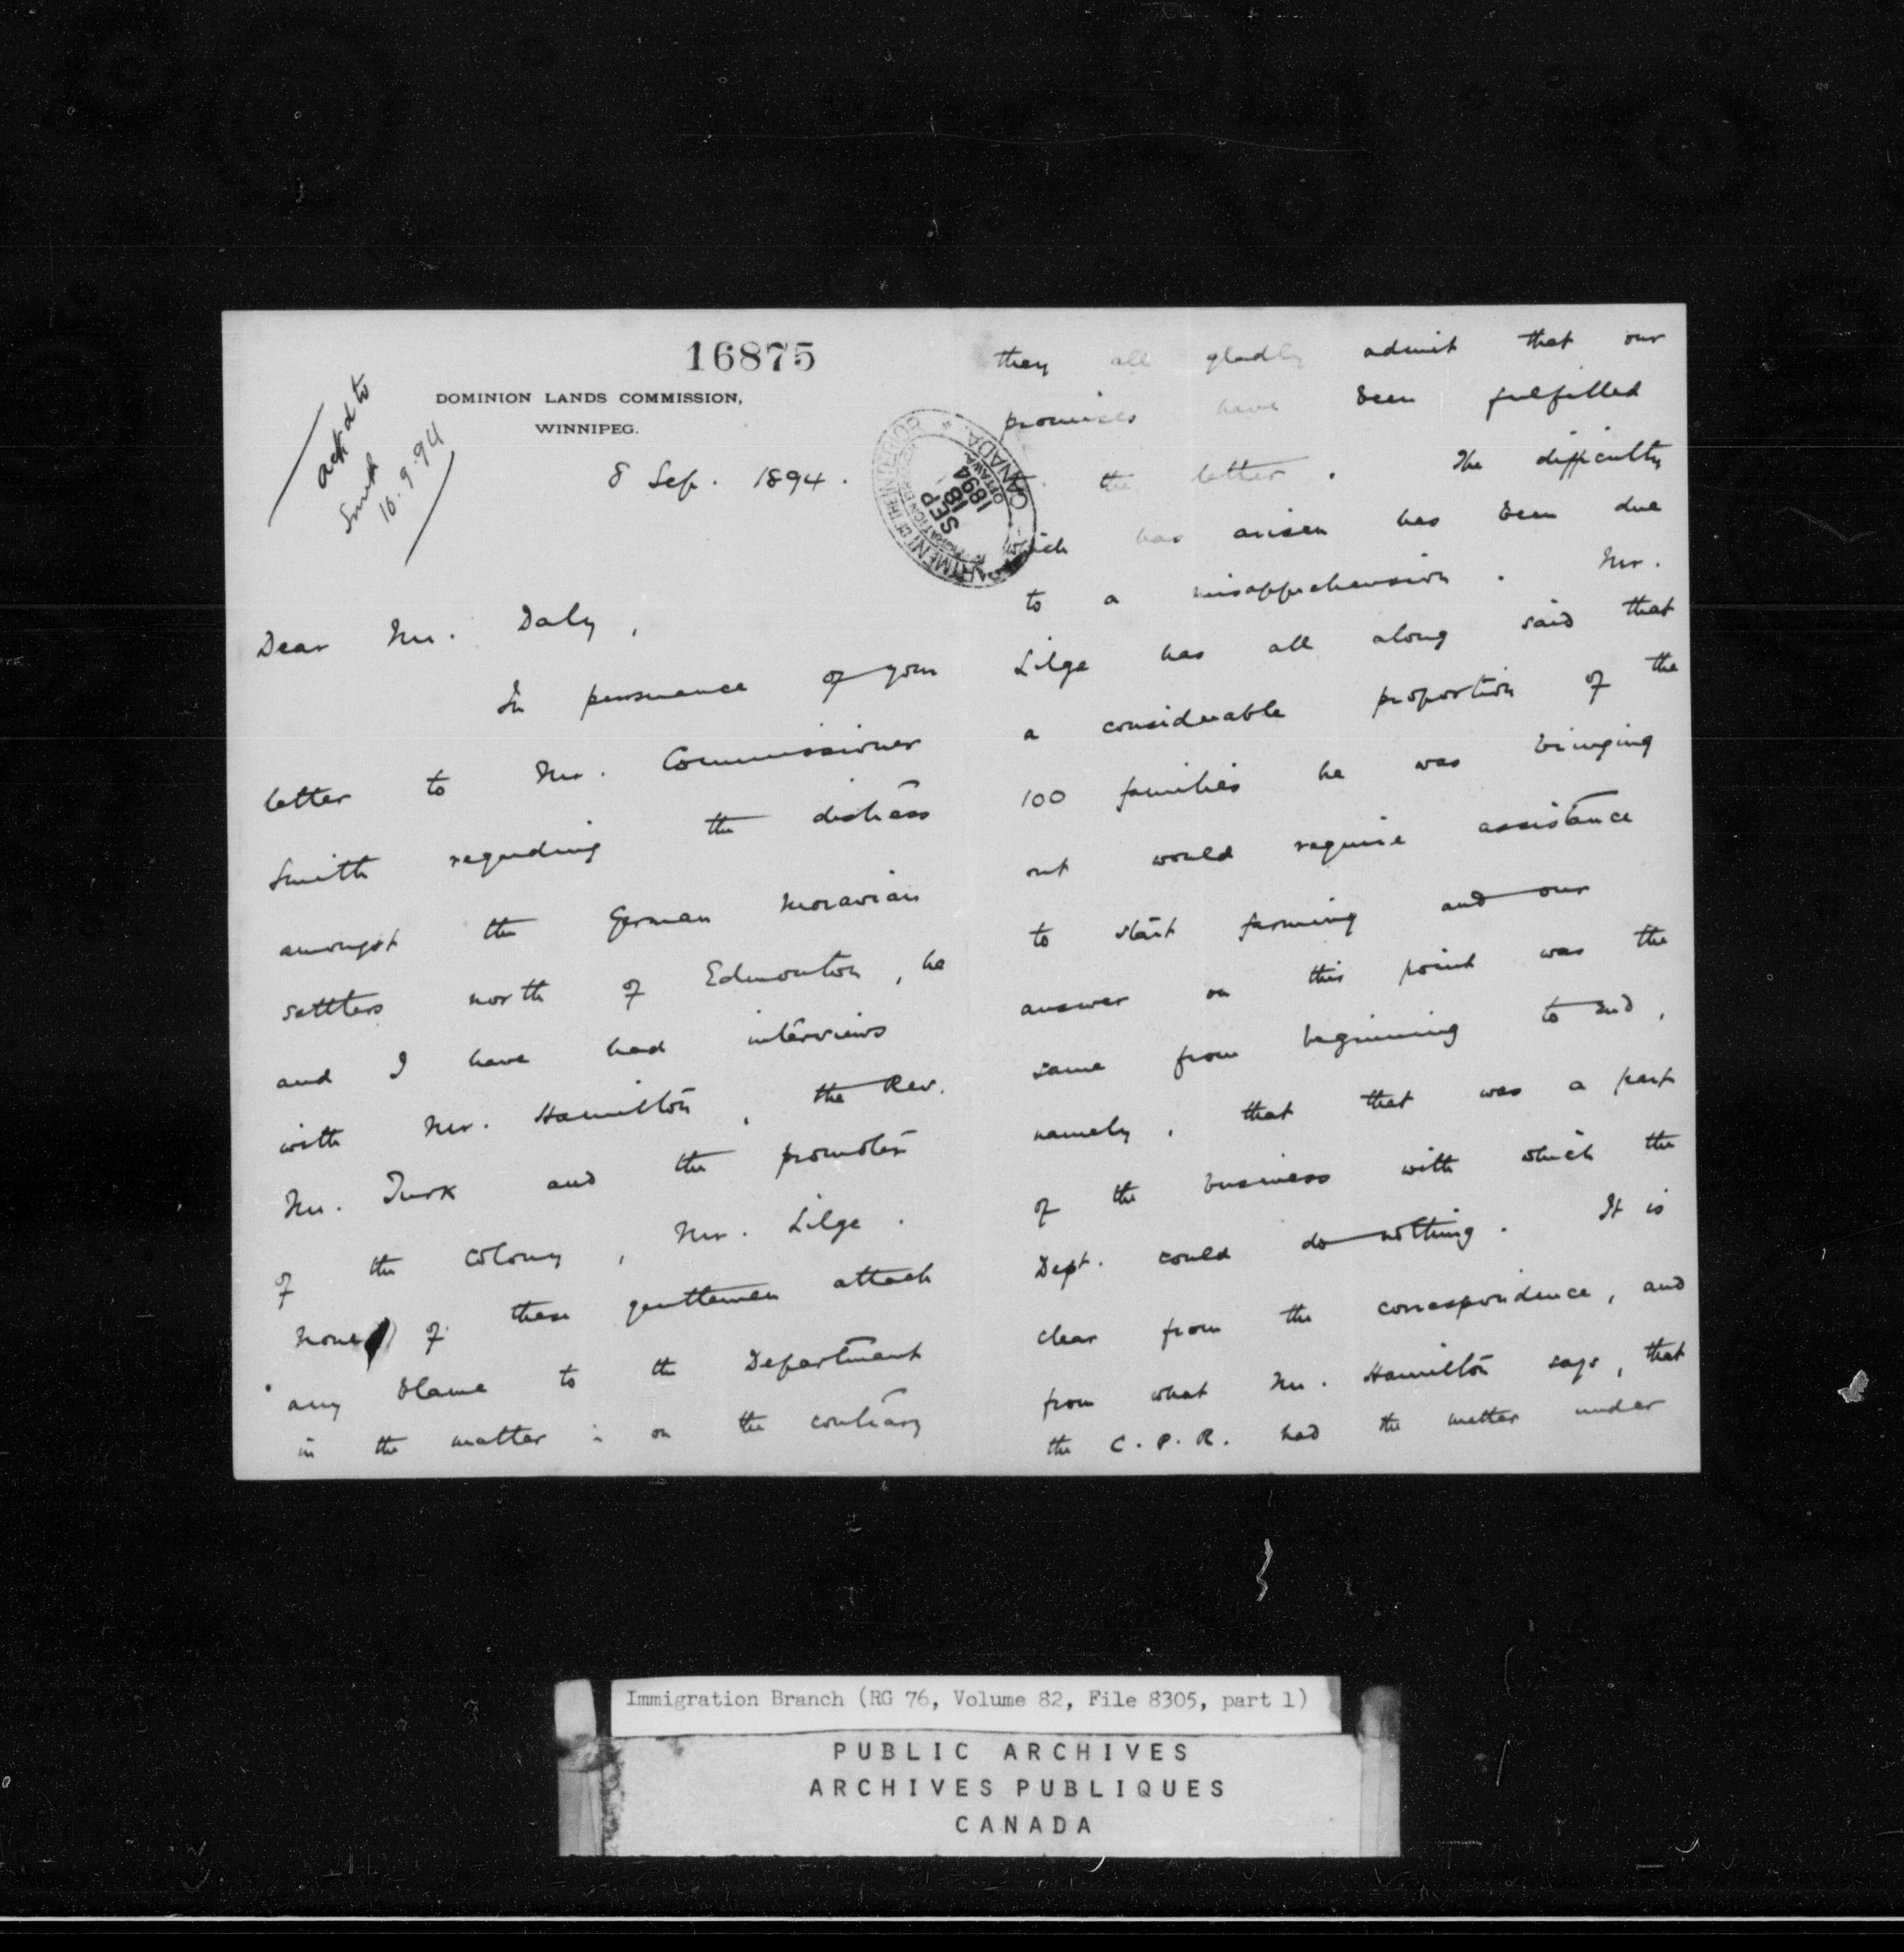 16875
DOMINION LANDS COMMISSION,
WINNIPEG.
8 Sep. 1894.
ackd to
Smith
16.9.94
DEPARTMENT OF THE INTERIOR
SEP
18
1894
OTTAWA
CANADA
Dear Mr. Daly,
In pursuance of your
letter to Mr. Commissioner
Smith regarding the distress
amongst the German Moravian
settlers north of Edmonton, he
and I have had interviews
with Mr. Hamilton, the Rev.
Mr. Turk and the promoter
of the colony, Mr. Lilge.
None of these gentlemen attach
any blame to the Department
in the matter: on the contrary
they all gladly admit that our
promises have been fulfilled
to the letter. The difficulty
which has arisen has been due
to a misapprehension. Mr.
Lilge has all along said that
a considerable proportion of the
100 families he was bringing
out would require assistance
to start farming and our
answer on this point was the
same from beginning to end,
namely, that that was a part
of the business with which the
Dept. could do nothing. It is
clear from the correspondence, and
from what Mr. Hamilton says, that
the C.P.R. had the matter under
Immigration Branch (RG 76, Volume 82, File 8305, part 1)
PUBLIC ARCHIVES
ARCHIVES PUBLIQUES
CANADA